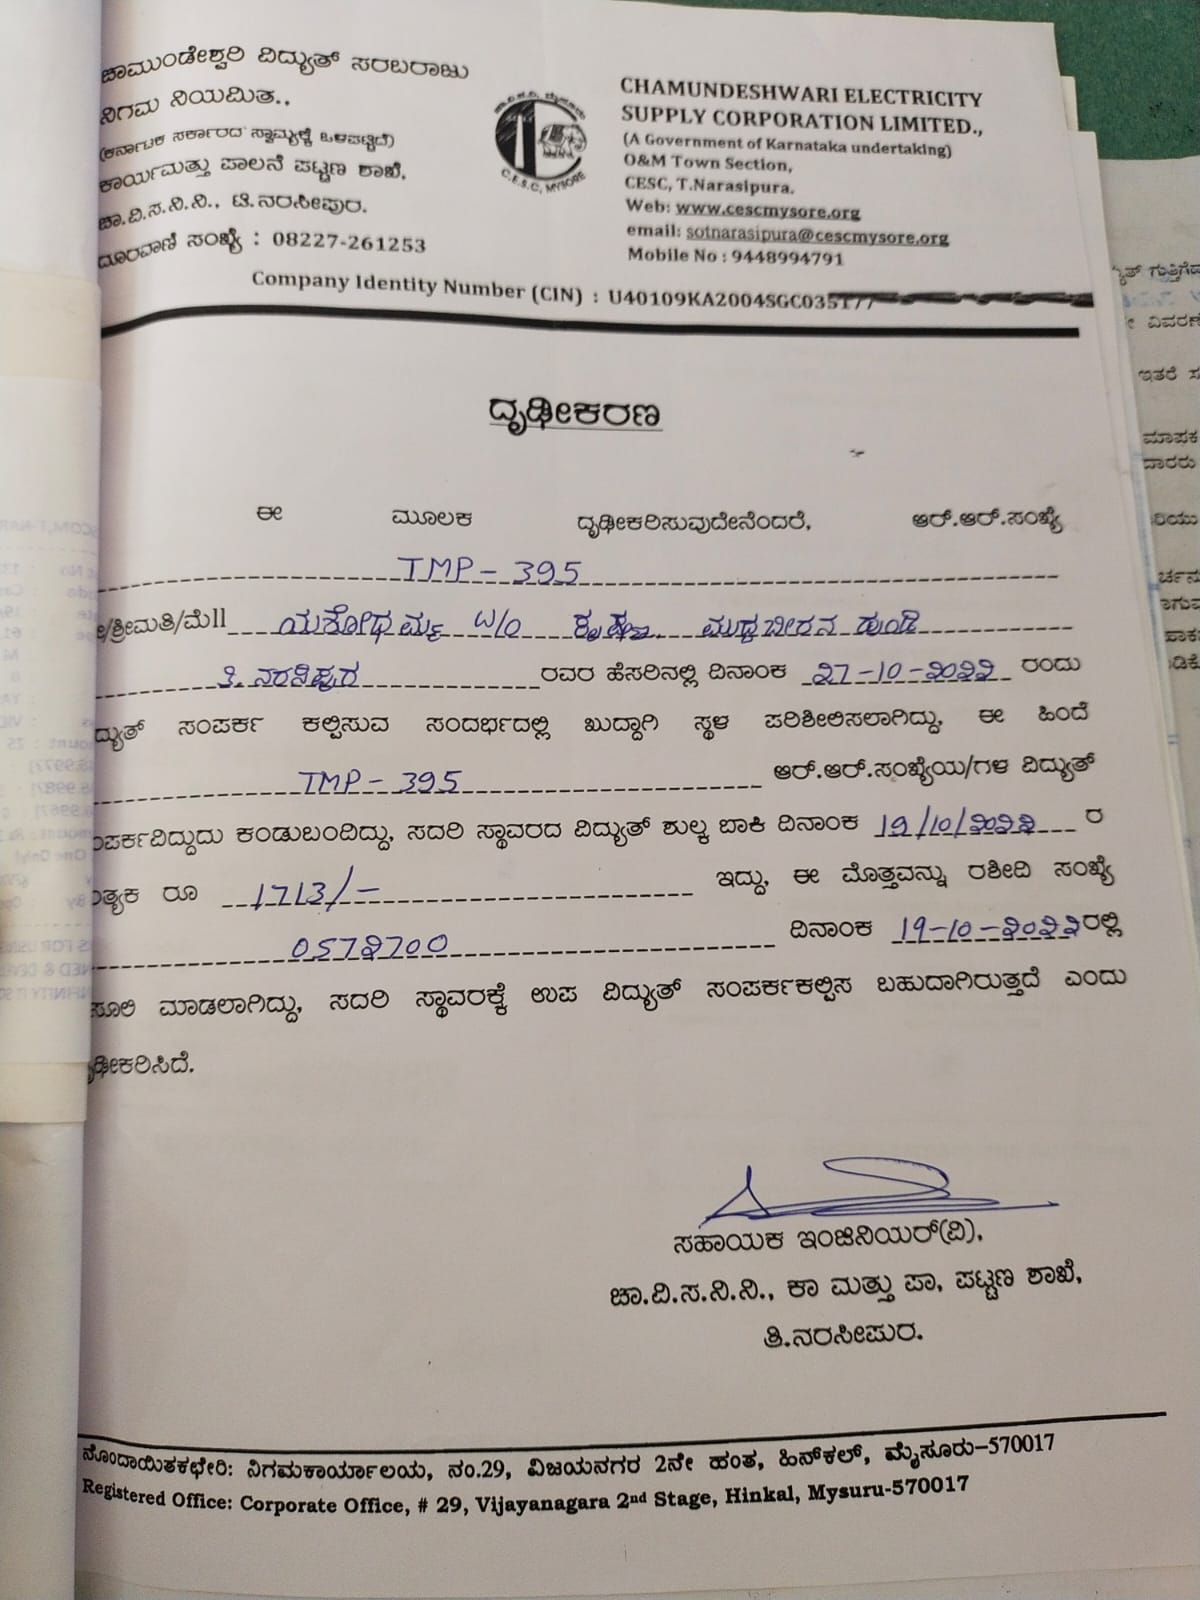 ಚಾಮುಂಡೇಶ್ವರಿ ವಿದ್ಯುತ್ ಸರಬರಾಜು
ನಿಗಮ ನಿಯಮಿತ.,
(ಕರ್ನಾಟಕ ಸರ್ಕಾರದ ಸ್ವಾಮ್ಯಕ್ಕೆ ಒಳಪಟ್ಟಿದೆ)
ಕಾರ್ಯಮತ್ತು ಪಾಲನೆ ಪಟ್ಟಣ ಶಾಖೆ,
ಚಾ.ವಿ.ಸ.ನಿ.ನಿ., ಟಿ.ನರಸೀಪುರ.
ದೂರವಾಣಿ ಸಂಖ್ಯೆ : 08227-261253
C.E.S.C, MYSORE
CHAMUNDESHWARI ELECTRICITY
SUPPLY CORPORATION LIMITED.,
(A Government of Karnataka undertaking)
O&M Town Section,
CESC, T.Narasipura.
Web: www.cescmysore.org
email: sotnarasipura@cescmysore.org
Mobile No : 9448994791
Company Identity Number (CIN) : U40109KA2004SGC035177
ದೃಢೀಕರಣ
ಈ ಮೂಲಕ ದೃಢೀಕರಿಸುವುದೇನೆಂದರೆ, ಆರ್.ಆರ್.ಸಂಖ್ಯೆ
TMP-395
/ಶ್ರೀಮತಿ/ಮೆ|| ಯಶೋಧಮ್ಮ W/O ಕೃಷ್ಣ ಮುದ್ದಬೀರನ ಹುಂಡಿ
ತಿ. ನರಸಿಪುರ ರವರ ಹೆಸರಿನಲ್ಲಿ ದಿನಾಂಕ ೨7-10-೨೦೨೨ ರಂದು
ದ್ಯುತ್ ಸಂಪರ್ಕ ಕಲ್ಪಿಸುವ ಸಂದರ್ಭದಲ್ಲಿ ಖುದ್ದಾಗಿ ಸ್ಥಳ ಪರಿಶೀಲಿಸಲಾಗಿದ್ದು, ಈ ಹಿಂದೆ
TMP-395 ಆರ್.ಆರ್.ಸಂಖ್ಯೆಯ/ಗಳ ವಿದ್ಯುತ್
ಂಪರ್ಕವಿದ್ದುದು ಕಂಡುಬಂದಿದ್ದು, ಸದರಿ ಸ್ಥಾವರದ ವಿದ್ಯುತ್ ಶುಲ್ಕ ಬಾಕಿ ದಿನಾಂಕ 19/10/೨೦೨೨ ರ
ತ್ಯಕ ರೂ 1713/- ಇದ್ದು, ಈ ಮೊತ್ತವನ್ನು ರಶೀದಿ ಸಂಖ್ಯೆ
057೨700 ದಿನಾಂಕ 19-10-೨೦೨೨ರಲ್ಲಿ
ಸೂಲಿ ಮಾಡಲಾಗಿದ್ದು, ಸದರಿ ಸ್ಥಾವರಕ್ಕೆ ಉಪ ವಿದ್ಯುತ್ ಸಂಪರ್ಕಕಲ್ಪಿಸ ಬಹುದಾಗಿರುತ್ತದೆ ಎಂದು
ಢೀಕರಿಸಿದೆ.
ಸಹಾಯಕ ಇಂಜಿನಿಯರ್(ವಿ),
ಚಾ.ವಿ.ಸ.ನಿ.ನಿ., ಕಾ ಮತ್ತು ಪಾ, ಪಟ್ಟಣ ಶಾಖೆ,
ತಿ.ನರಸೀಪುರ.
ನೊಂದಾಯಿತಕಛೇರಿ: ನಿಗಮಕಾರ್ಯಾಲಯ, ನಂ.29, ವಿಜಯನಗರ 2ನೇ ಹಂತ, ಹಿನ್‌ಕಲ್, ಮೈಸೂರು-570017
Registered Office: Corporate Office, # 29, Vijayanagara 2nd Stage, Hinkal, Mysuru-570017